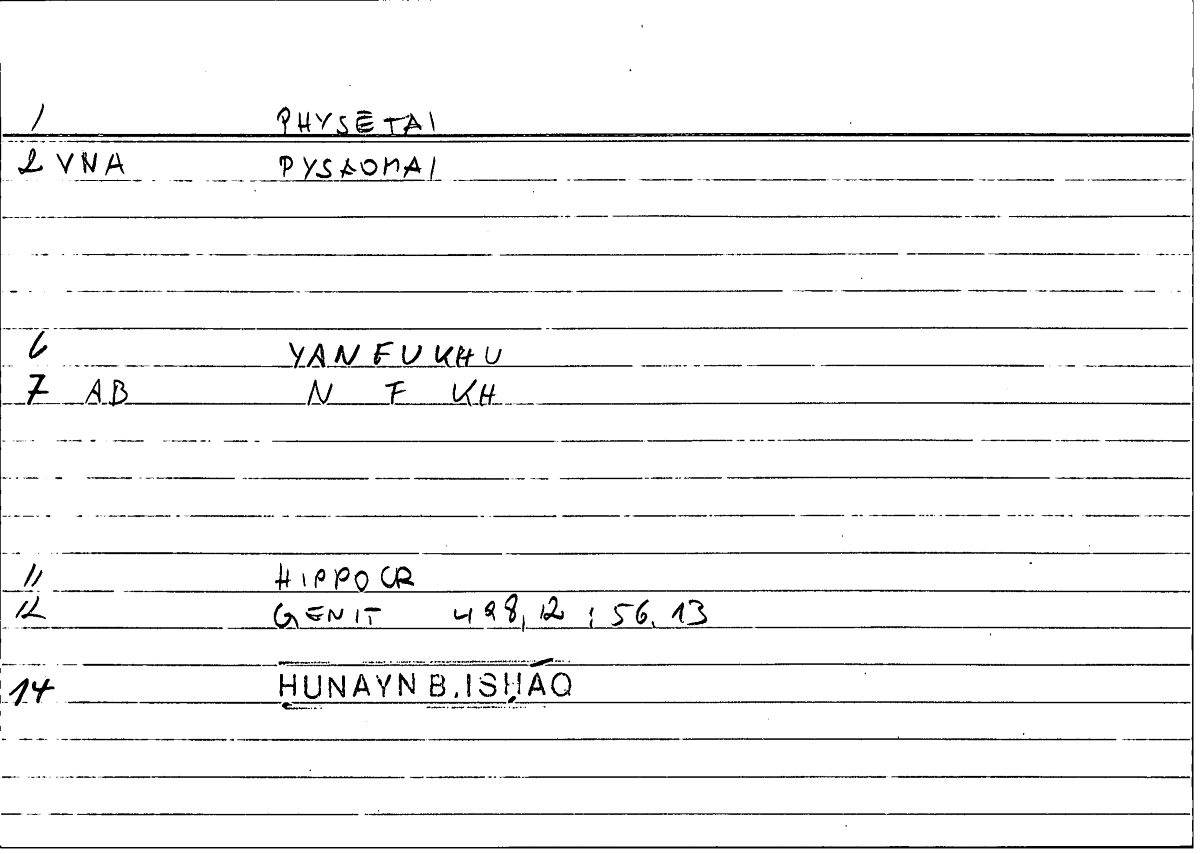 1 PHYSĒTAI
2 VNA PYSAOMAI
6 YANFUKHU
7 AB N F KH
11 HIPPOCR
12 GENIT 498,12 ; 56,13
14 ḤUNAYN B. ISḤĀQ